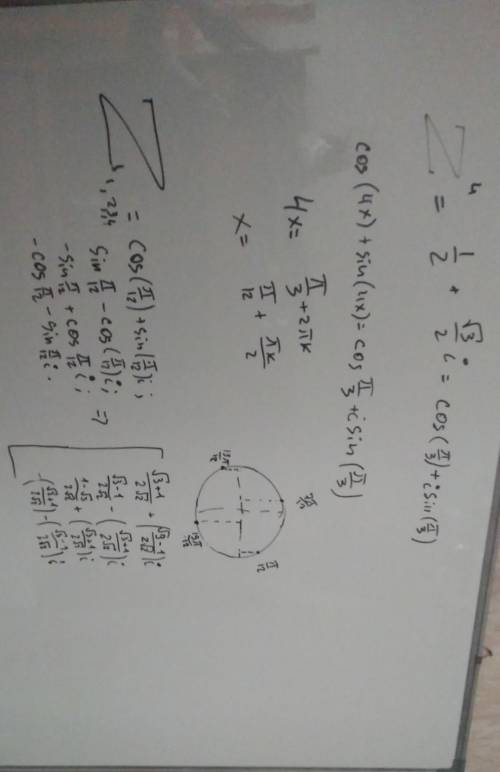 Z⁴ = 1/2 + √3/2 i = cos(π/3) + i sin(π/3)
cos(4x) + sin(4x) = cos π/3 + i sin(π/3)
4x = π/3 + 2πk
x = π/12 + πk/2
π/12
Z 1,2,3,4 = cos(π/12) + sin(π/12) i ;
sin π/12 - cos(π/12) i ; =>
-sin π/12 + cos π/12 i ;
-cos π/12 - sin π/12 i .
√3+1/2√2 + (√3-1/2√2) i
√3-1/2√2 - (√3+1/2√2) i
1-√3/2√2 + (√3+1/2√2) i
-(√3+1/2√2) - (√3-1/2√2) i